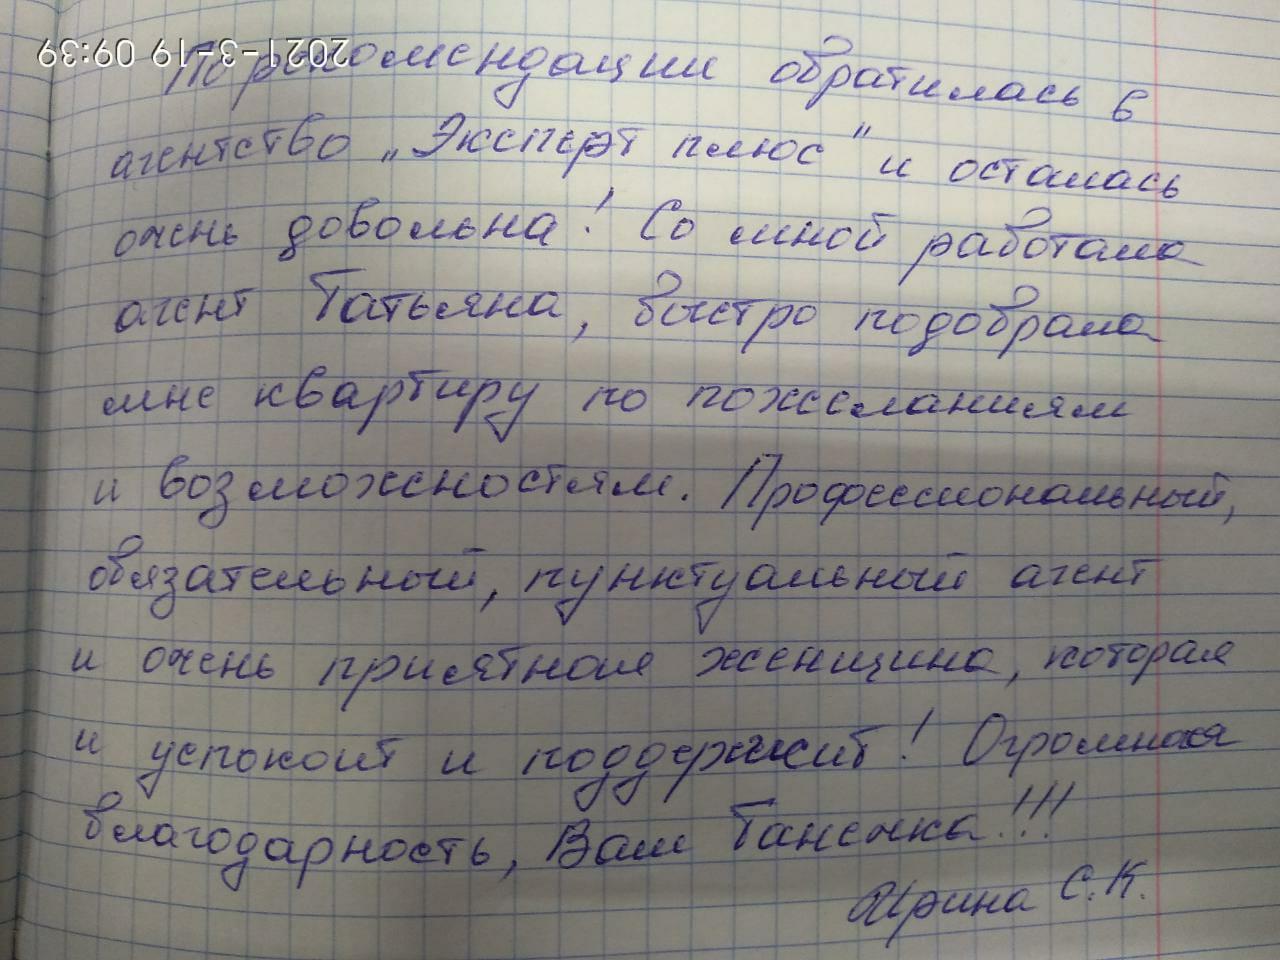 2021-3-19 09:39
По рекомендации обратилась в
агентство „Эксперт плюс" и осталась
очень довольна! Со мной работала
агент Татьяна, быстро подобрала
мне квартиру по пожеланиям
и возможностям. Профессиональный,
обязательный, пунктуальный агент
и очень приятная женщина, которая
и успокоит и поддержит! Огромная
благодарность, Вам Танечка!!!
Ирина С.К.